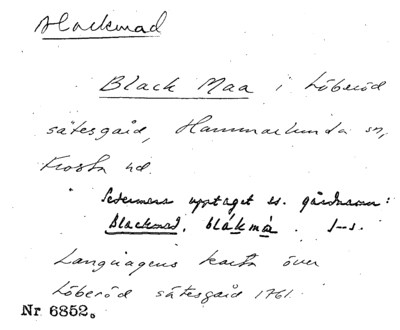 Blackmad
Black Maa i Löberöd
sätesgård, Hammarlunda sn,
Frosta hd.
Sedermera upptaget ss. gårdnamn:
Blackmad, blákmà. I--s.
Languagens karta över
Löberöd sätesgård 1761.
Nr 6852.